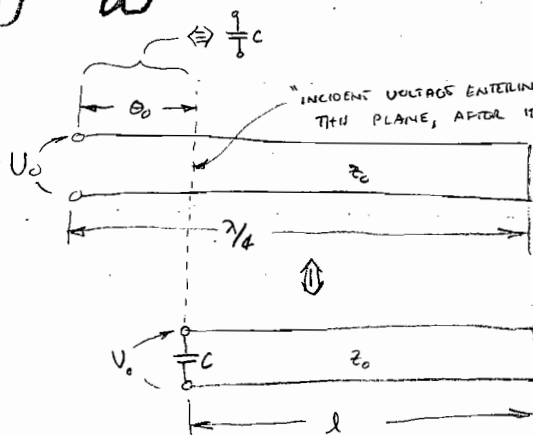 ⇔ C
θ₀
"INCIDENT VOLTAGE ENTERIN
THIS PLANE, AFTER
U₀
Z₀
λ/4
⇕
U₀
C
Z₀
l